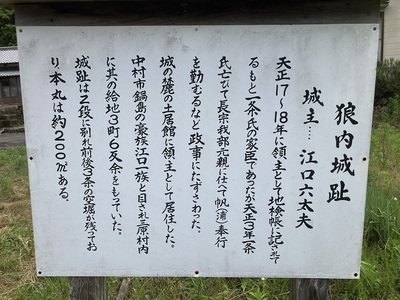 狼内城趾
城主…江口六太夫
天正17~18年に領主として地検帳に記されて
るもと一条氏の家臣であったが天正3年一条
氏亡びて長宗我部元親に仕へて帆(浦)奉行
を勤むるなど政事にたずさわった。
城の麓の土居館に領主として居住した。
中村市鍋島の豪族江口一族と目され三原村内
に其の給地3町6反余をもっていた。
城趾は2段に別れ前後3条の空堀が残ってお
り本丸は約200㎡ある。